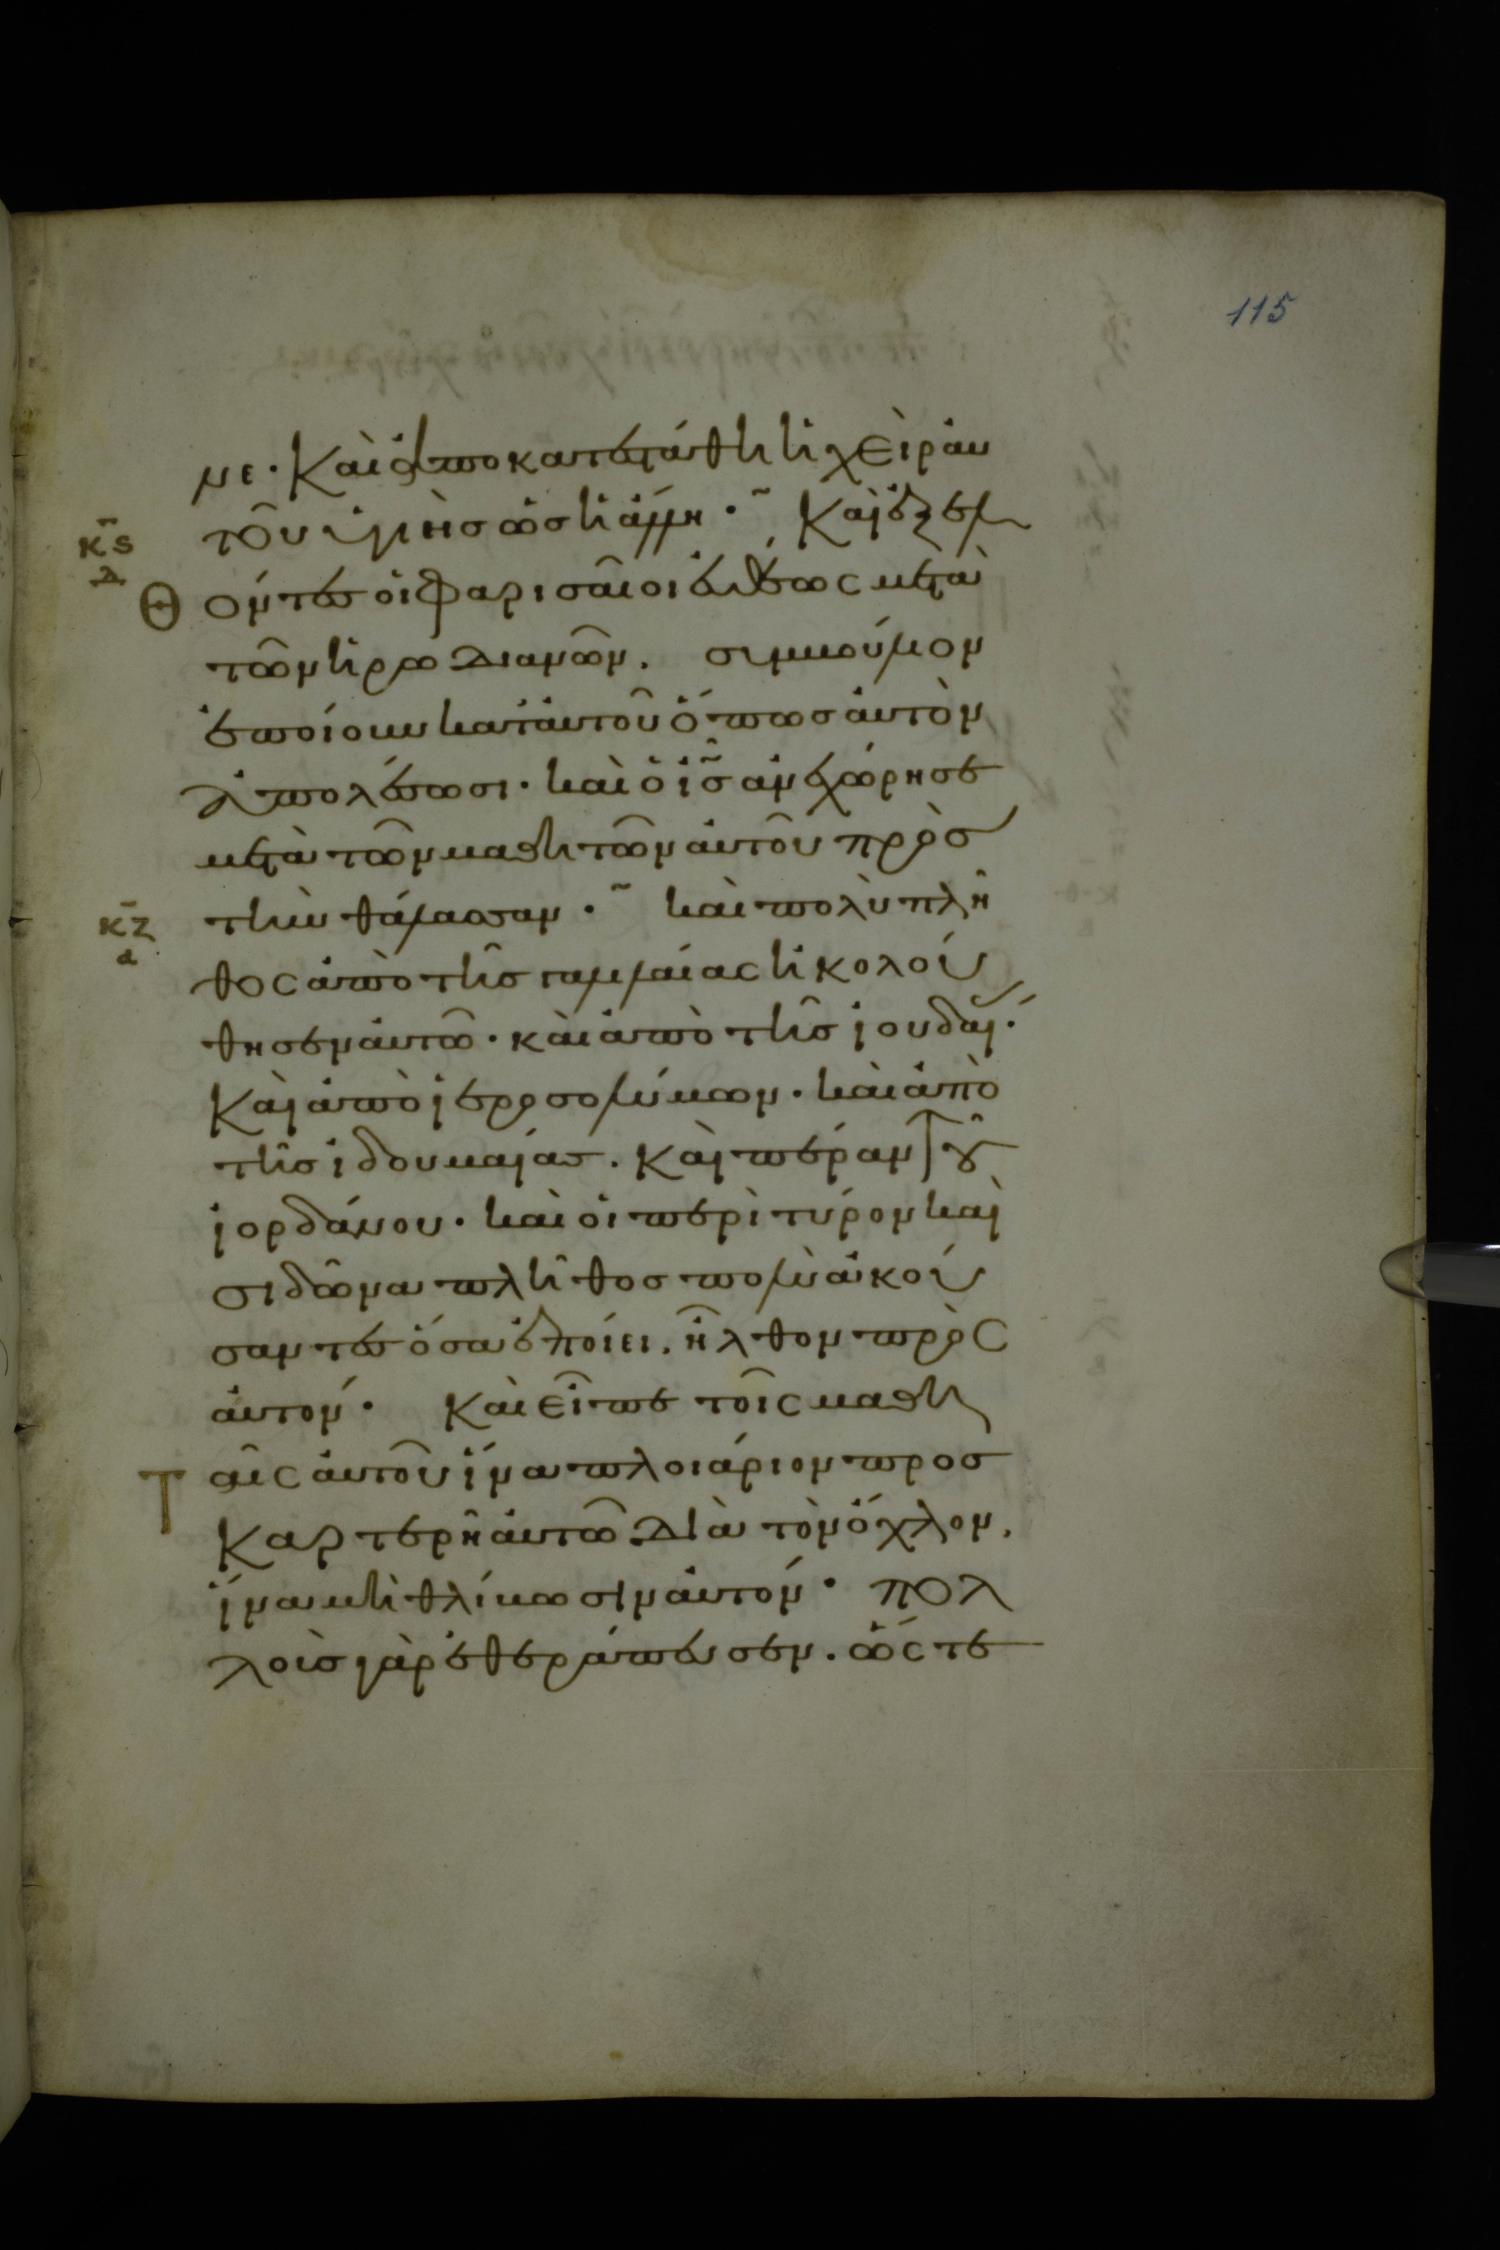 115
νε· Καὶ ἀποκατεστάθη ἡ χεὶρ αυ
τοῦ ὑγιὴσ ὡσ ἡ ἄλλη· Καὶ ἐξελ
κ̅ς̅
δ
Θόντεσ οἱ φαρισαῖοι ἐυθέως μετὰ
τῶν ἡρωδιανῶν. συμβούλιον
ἐποίουν κατ' ἀυτοῦ ὅπωσ ἀυτὸν
ἀπολέσωσι· καὶ ὁ ι̅σ̅ ἀνεχώρησε
μετὰ τῶν μαθητῶν ἀυτοῦ πρὸσ
τὴν θάλασσαν· καὶ πολὺ πλῆ
κ̅ζ̅
α
θος ἀπὸ τῆσ γαλιλαίας ἠκολού
θησεν ἀυτῶ· καὶ ἀπὸ τῆσ ἰουδαί·
Καὶ ἀπὸ ἱεροσολύμων· καὶ ἀπὸ
τῆσ ἰδουμαίασ. Καὶ πέραν τοῦ
ἰορδάνου· καὶ οἱ περὶ τύρον καὶ
σιδῶνα πλῆθοσ πολὺ ἀκού
σαντεσ ὅσα ἐποίει. ἦλθον πρὸς
ἀυτόν· Καὶ εἶπε τοῖς μαθη
Ταῖς ἀυτοῦ ἵνα πλοιάριον προσ
Καρτερῆ ἀυτῶ Διὰ τὸν ὄχλον.
ἵνα μὴ θλίβωσιν ἀυτόν· πολ
λοὺσ γὰρ ἐθεράπευσεν. ὥς τε